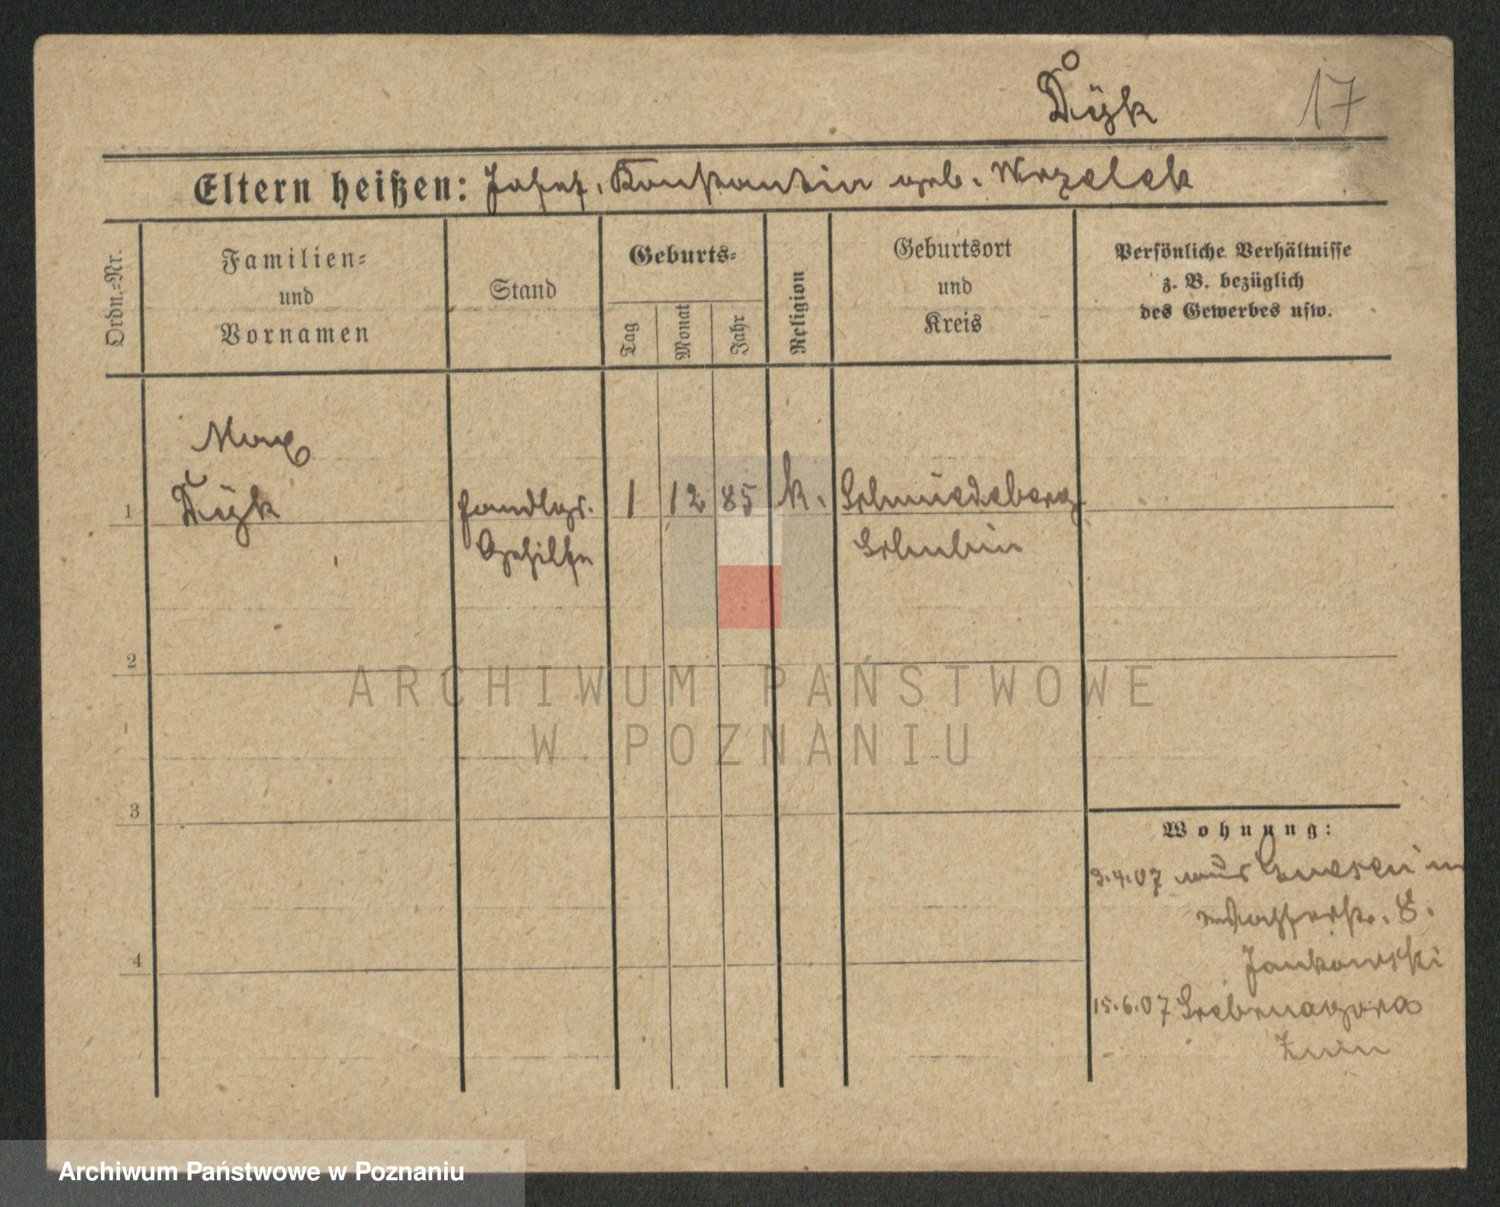 17
Eltern heißen: Josef, Konstantin geb.
Ordn.=Nr.
Familien=
und
Vornamen
Stand
Geburts=
Tag
Monat
Jahr
Religion
Geburtsort
und
Kreis
Persönliche Verhältnisse
z. B. bezüglich
des Gewerbes usw.
Max
1 1 12 85 k. Schmiedeberg
Handlgs.
Gehilfe
Schubin
2
ARCHIWUM PAŃSTWOWE
W POZNANIU
3
Wohnung:
3.4.07 aus Gnesen
Wasserstr. 8.
4
Jankowski
15.6.07 Srebrnagora
Znin
Archiwum Państwowe w Poznaniu